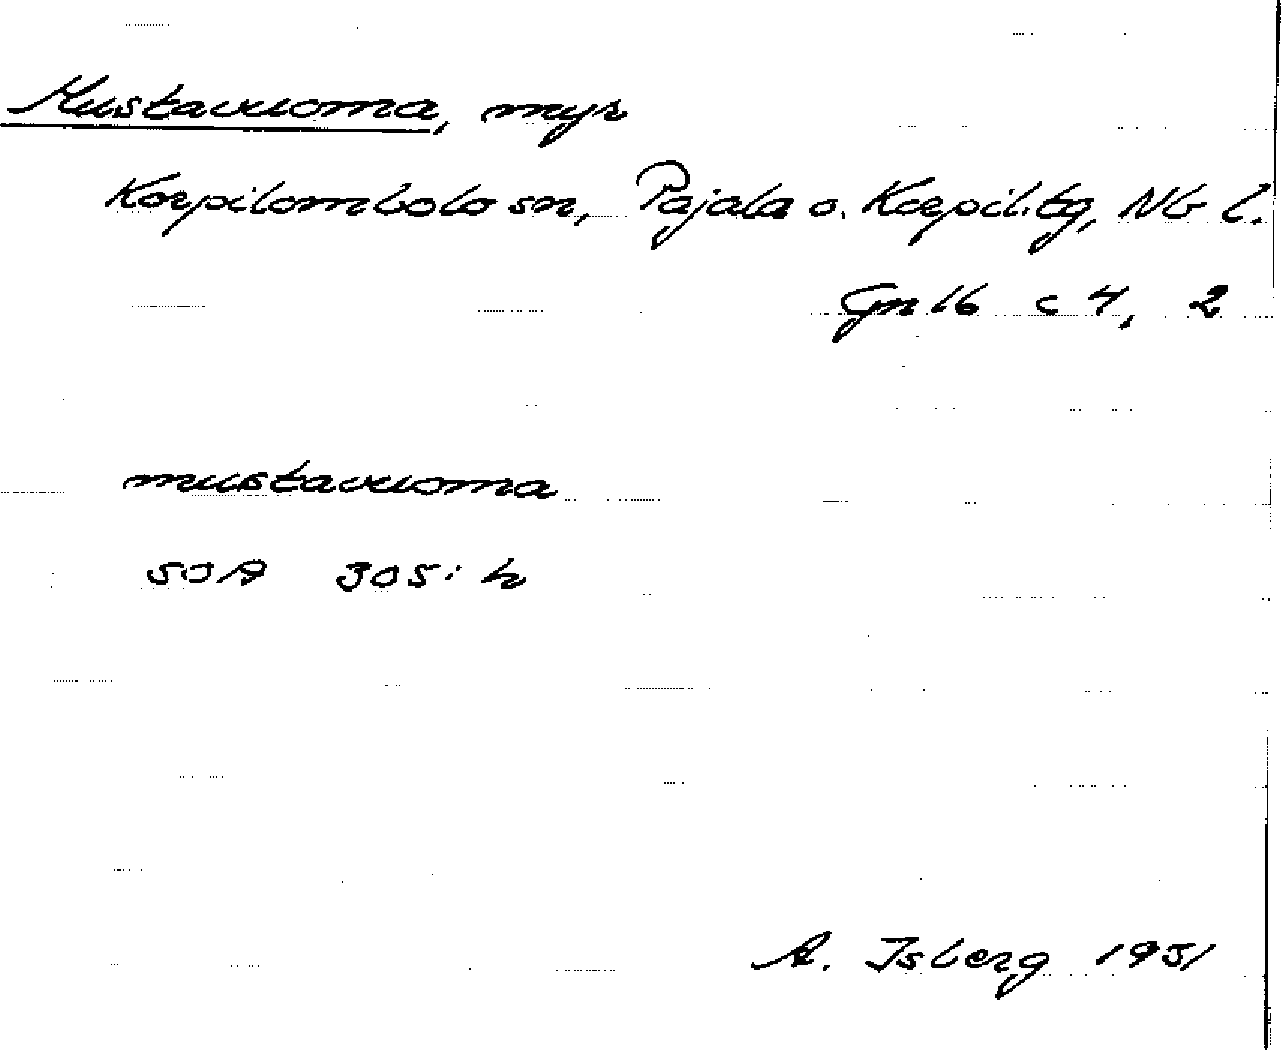 Mustavuoma, myr
Korpilombolo sn, Pajala o. Korpil. tg, Nb l.
Gn 16 c 4, 2
mustavuoma
SOA 305: h
A. Isberg 1931